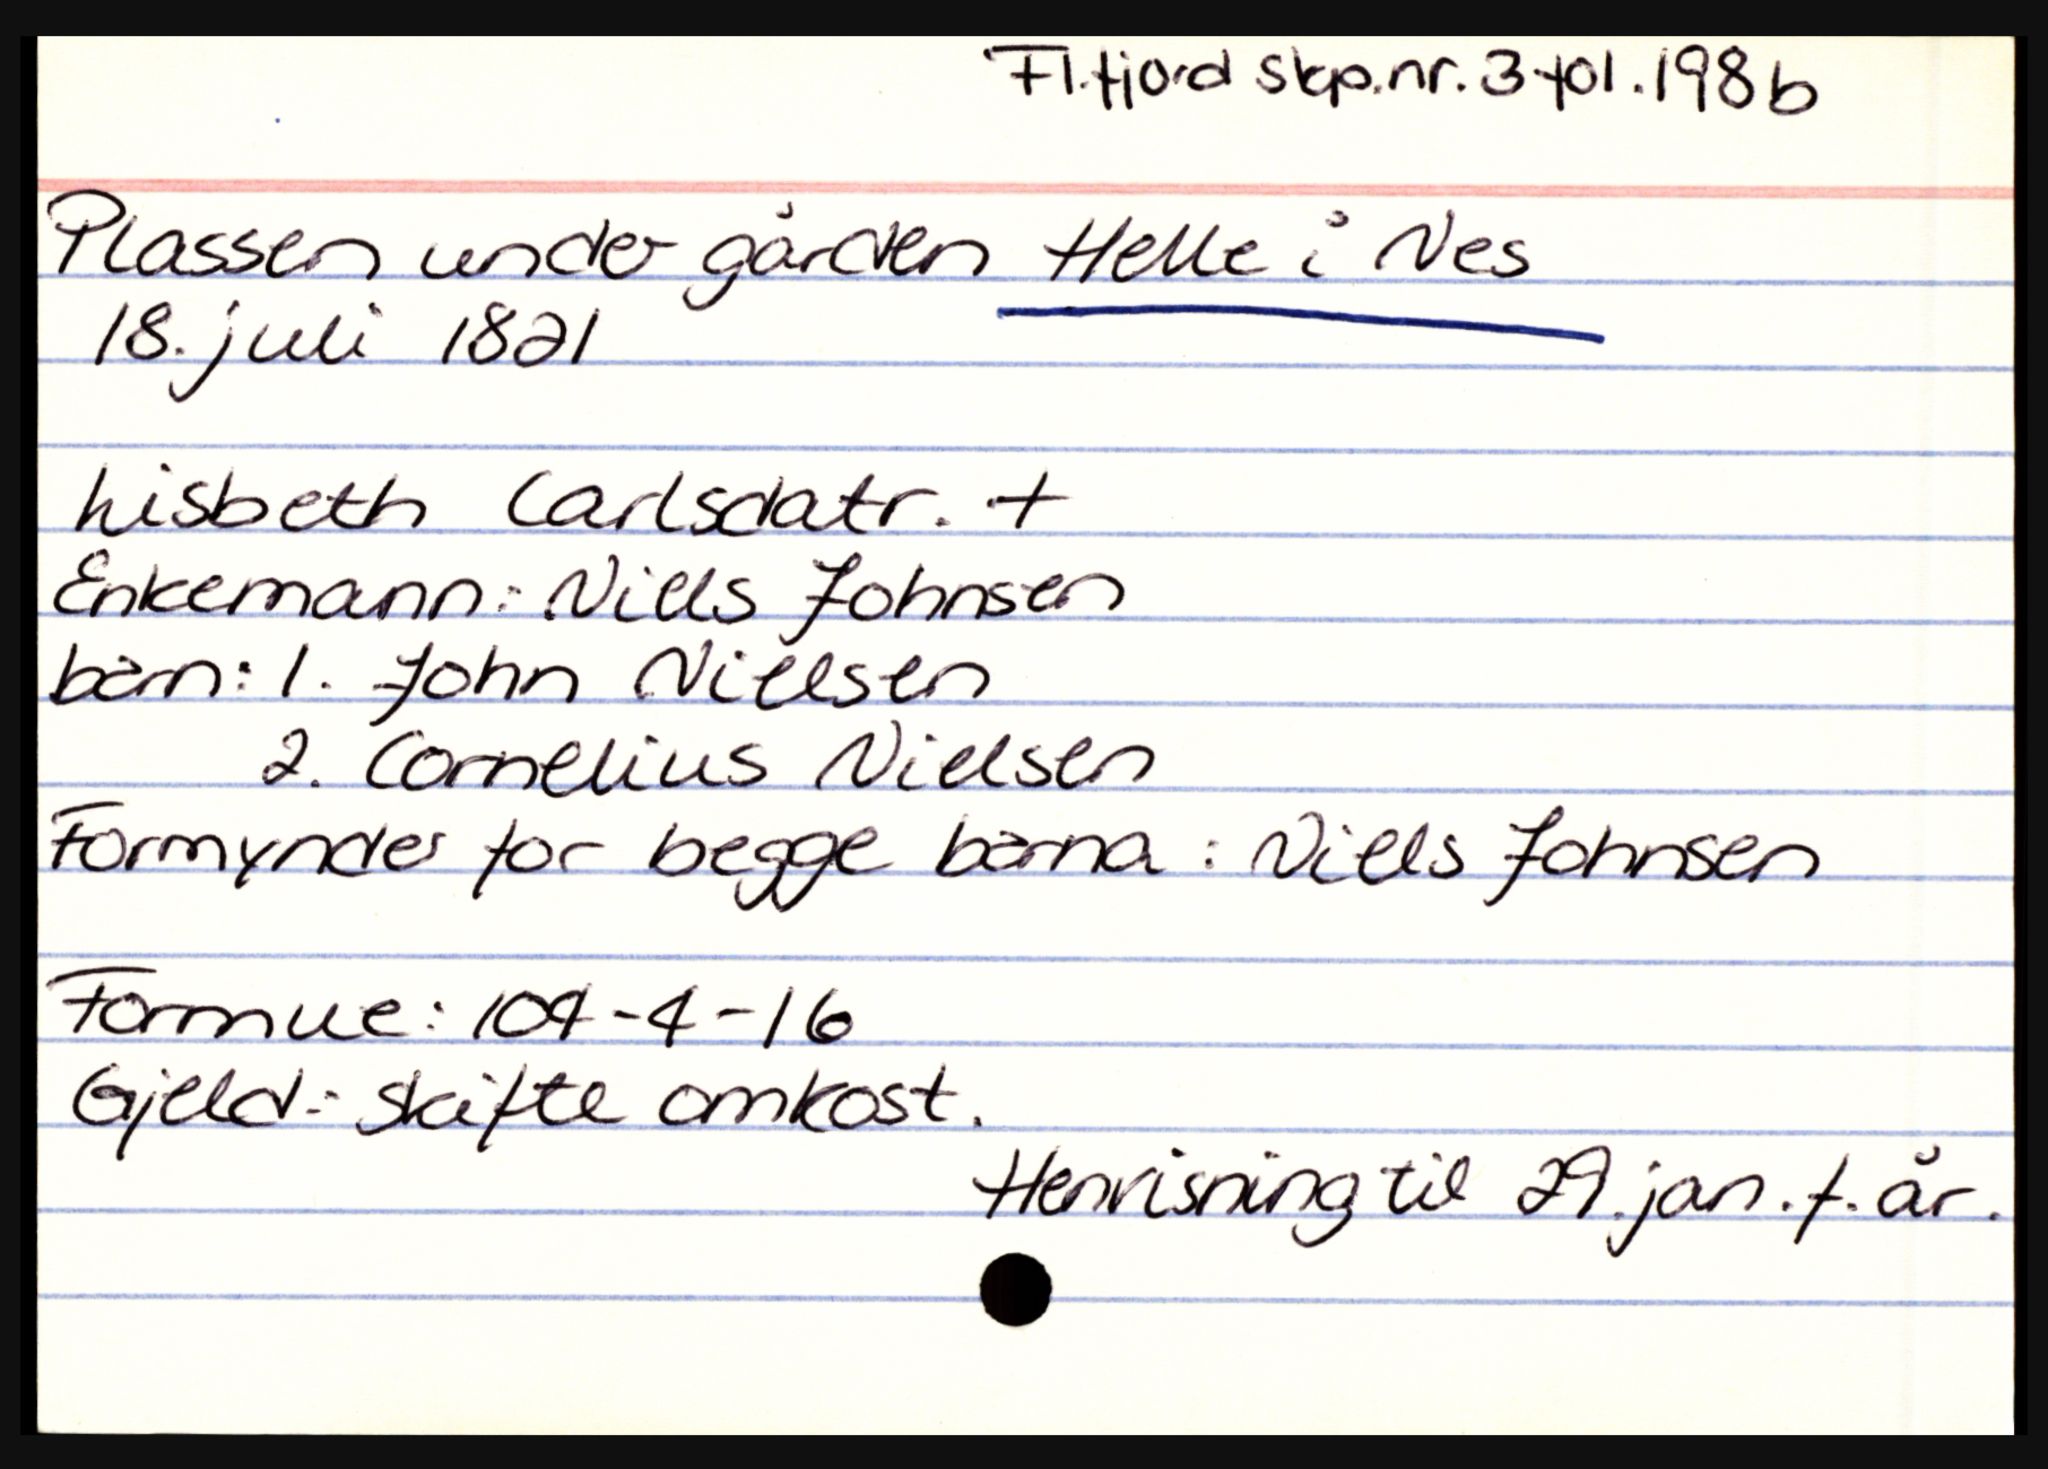 Fl.fjord skp.nr. 3 fol. 198b
Plassen under gården Helle i Nes
18. juli 1821
Lisbeth Carlsdatr. +
Enkemann: Niels Johnsen
barn: 1. John Nielsen
2. Cornelius Nielsen
Formynder for begge barna: Niels Johnsen
Formue: 104-4-16
Gjeld: skifte omkost.
Henvisning til 29. jan. f. år.